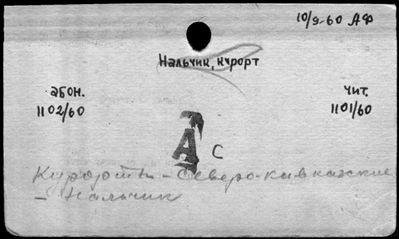 10/9-60 АФ
Нальчик, курорт
абон. чит.
1102/60 1101/60
Д С
Курорты - Северо-кавказские
- Нальчик